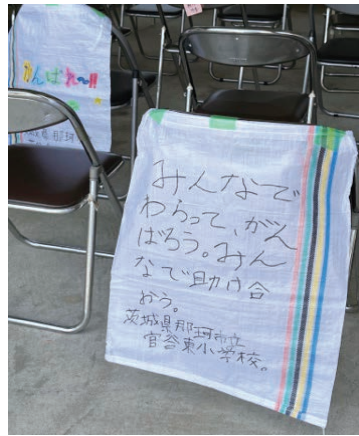 がんばれ〜!!
県那珂
みんなで
わらって、がん
ばろう。みん
なで助け合
おう。
茨城県那珂市立
菅谷東小学校。